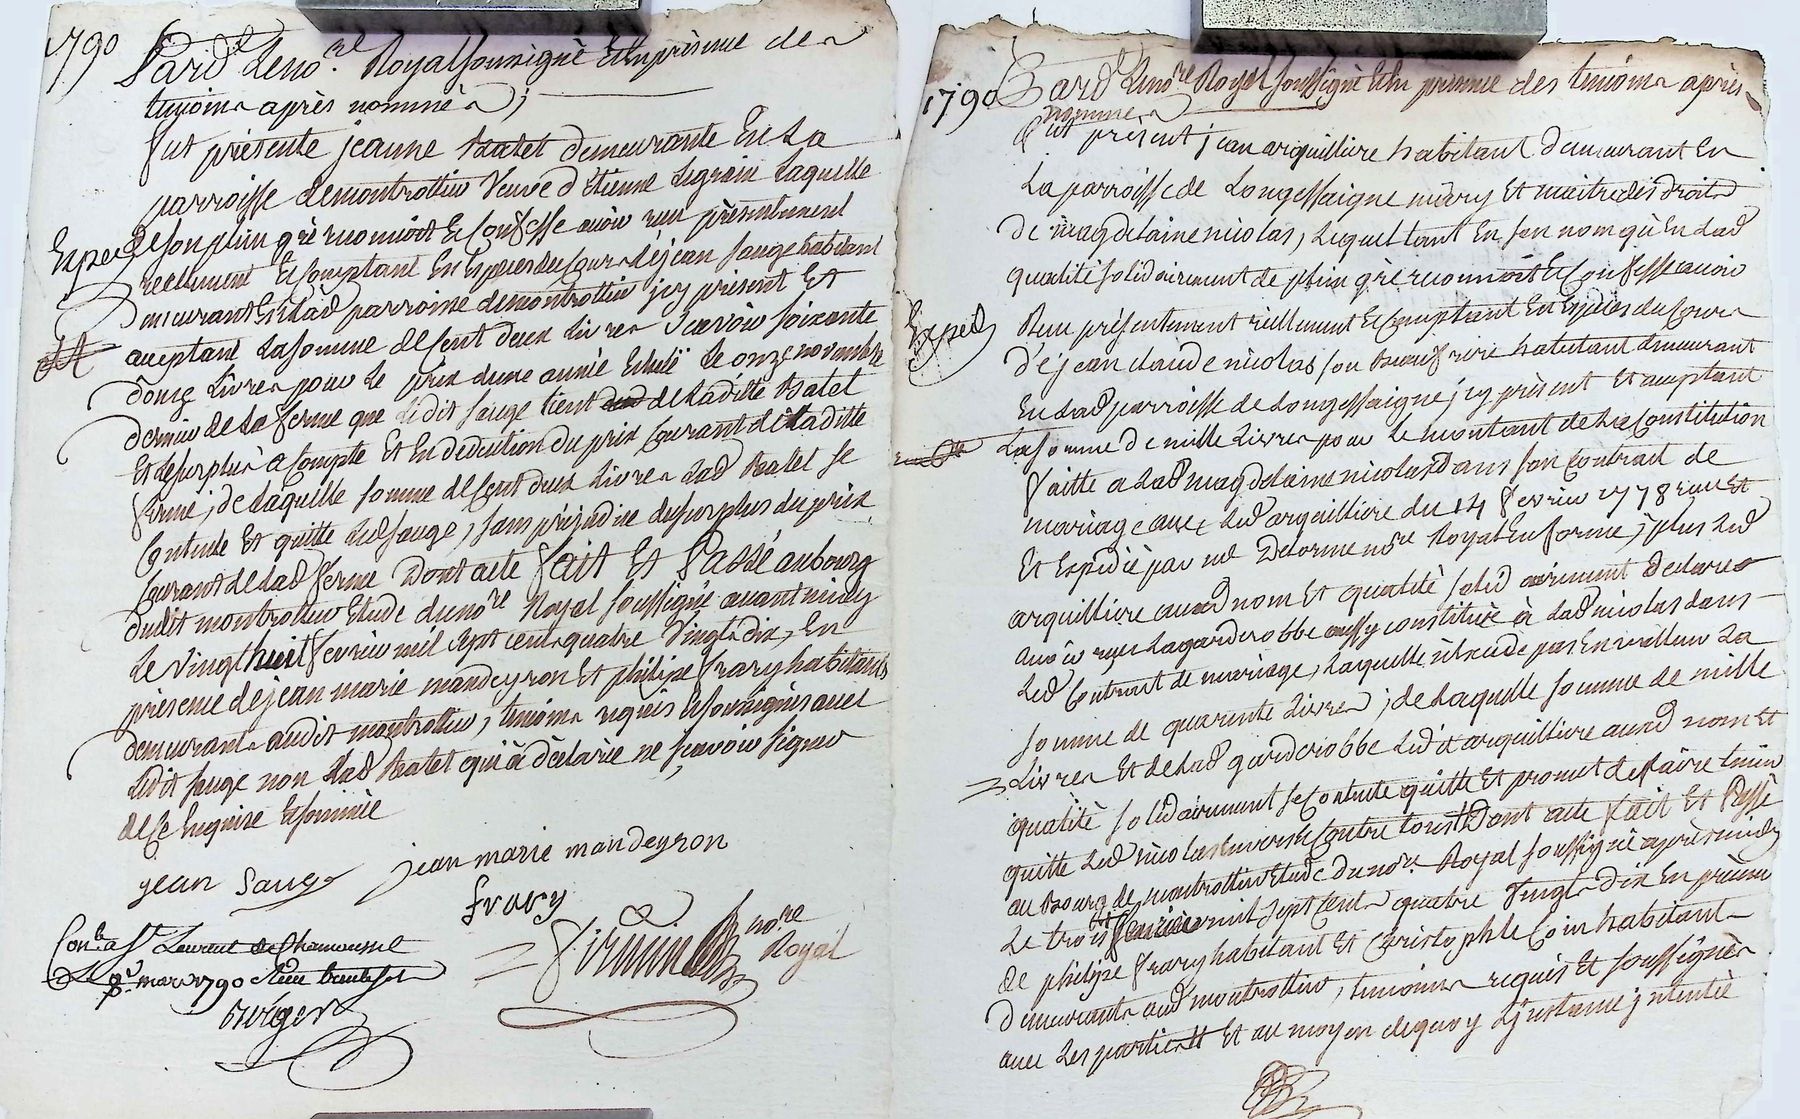 1790 Pard.t Le no.re Royal soussigné Et En présence des
temoins après nommés ;
fut présente jeanne Batet demeurante En La
parroisse de montrottier Veuve d'Etienne Legrain Laquelle
Exped. de son plein gré reconnoit Et Confesse avoir reçu présentement
reellement Et Comptant En Espèces du Cours de jean sauge habitant
demeurant En Lad. parroisse de montrottier jcy présent Et
acceptant La somme de Cent deux Livres Scavoir soixante
douze Livres pour Le prix d'une année Echuë Le onze novembre
dernier de La ferme que Ledit sauge tient de Laditte Batet
Et Le surplus à Compte Et En deduction du prix Courant de Laditte
ferme ; de Laquelle somme de Cent deux Livres Lad. Batet se
Contente Et quitte Led. sauge, sans préjudice du surplus du prix
Courant de Lad. ferme Dont acte fait Et Passé au bourg
dudit montrottier Etude du no.re Royal soussigné avant midy
Le Vingt huit fevrier mil sept cent quatre Vingt dix, En
présence de jean marie mandeyron Et philipe frary habitants
demeurants audit montrottier, temoins requis Et soussignés avec
Ledit sauge non Lad. Batet qui à déclaré ne sçavoir signer
de Ce Enquise Et sommée
jean Sauge jean marie mandeyron
frary
no.re Royal
Con.lé a S.t Laurent de Chamousset
mars 1790
1790 Pard. Le no.re Royal soussigné Et En présence des temoins après
nommés
fut présent jean arquilliere habitant demeurant En
La parroisse de Longessaigne mary Et maitre des droits
De magdelaine nicolas, Lequel tant En son nom qu'En Lad.
qualité solidairement de plein gré reconnoit Et Confesse avoir
Exped. Reçu présentement réellement Et Comptant En Espèces du Cours
de jean claude nicolas son Beaufrere habitant demeurant
En Lad. parroisse de Longessaigne jcy présent Et acceptant
La somme de mille Livres pour Le montant de La Constitution
faitte a Lad. magdelaine nicolas dans son Contrat de
mariage avec Led. arquilliere du 14 fevrier 1778 reçu Et
Et Expedié par me Delorme no.re Royal En forme ; plus Led.
arquilliere auxd. nom Et qualité solidairement declare
avoir reçu La garderobbe aussy constituée à Lad. nicolas dans
Led. Contrat de mariage, Laquelle n'Excede pas En valleur La
somme de quarente Livres ; de Laquelle somme de mille
Livres Et de Lad. garderobbe Led. arquilliere auxd. nom Et
qualité solidairement se Contente quitte Et promet de faire tenir
quitte Led. nicolas Envers Et Contre tous Dont acte fait Et Passé
au Bourg de montrottier Etude du no.re Royal soussigné après midy
Le trois fevrier mil sept cent quatre Vingt Dix En présence
de philipe frary habitant Et Christophle Coin habitants
demeurants aud. montrottier, temoins requis Et soussignés
avec Les parties Et au moyen de quoy L'jnstance jntentée